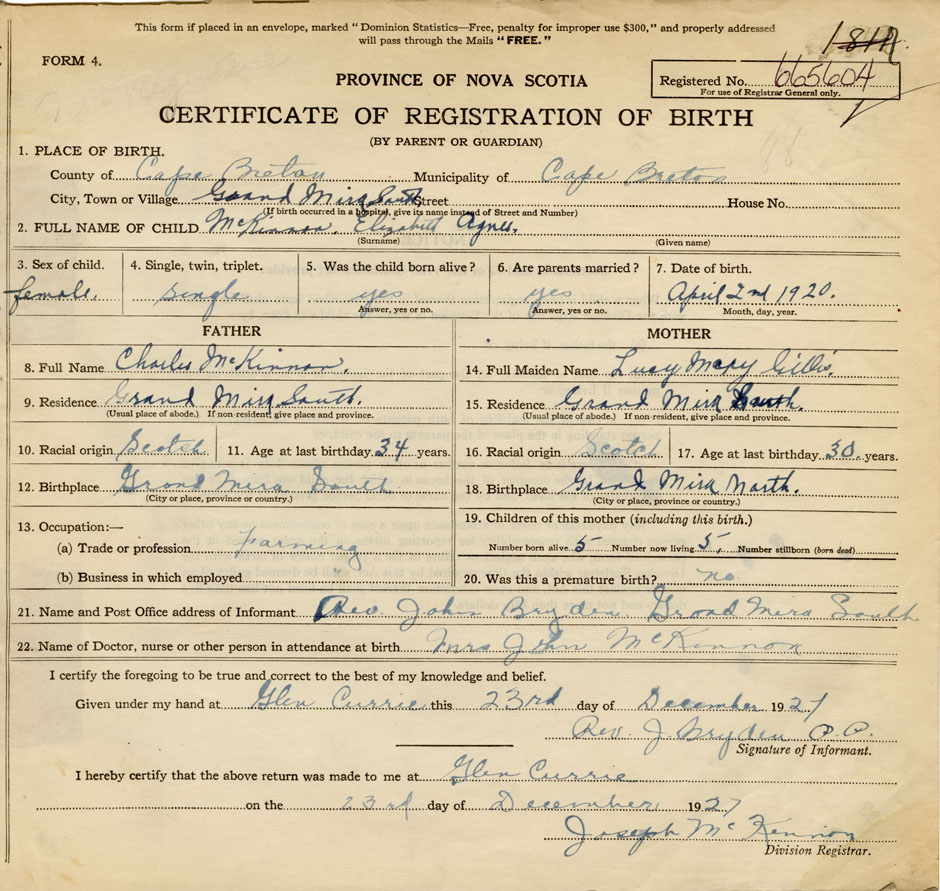 This form if placed in an envelope, marked "Dominion Statistics—Free, penalty for improper use $300," and properly addressed
will pass through the Mails "FREE."
FORM 4.
PROVINCE OF NOVA SCOTIA
Registered No. 665604
For use of Registrar General only.
CERTIFICATE OF REGISTRATION OF BIRTH
(BY PARENT OR GUARDIAN)
1. PLACE OF BIRTH.
County of Cape Breton Municipality of Cape Breton
City, Town or Village Grand Mira South Street House No.
(If birth occurred in a hospital, give its name instead of Street and Number)
2. FULL NAME OF CHILD McKinnon, Elizabeth Agnes.
(Surname) (Given name)
3. Sex of child. 4. Single, twin, triplet. 5. Was the child born alive? 6. Are parents married? 7. Date of birth.
female. single yes yes April 2nd 1920.
Answer, yes or no. Answer, yes or no. Month, day, year.
FATHER MOTHER
8. Full Name Charles McKinnon. 14. Full Maiden Name Lucy Mary Gillis.
9. Residence Grand Mira South. 15. Residence Grand Mira South.
(Usual place of abode.) If non-resident, give place and province. (Usual place of abode.) If non-resident, give place and province.
10. Racial origin Scotch 11. Age at last birthday 34 years. 16. Racial origin Scotch 17. Age at last birthday 30. years.
12. Birthplace Grand Mira South 18. Birthplace Grand Mira North.
(City or place, province or country.) (City or place, province or country.)
13. Occupation:— 19. Children of this mother (including this birth.)
(a) Trade or profession Farming Number born alive 5 Number now living 5, Number stillborn (born dead)
(b) Business in which employed 20. Was this a premature birth? no
21. Name and Post Office address of Informant Rev. John Bryden Grand Mira South
22. Name of Doctor, nurse or other person in attendance at birth Mrs John McKinnon
I certify the foregoing to be true and correct to the best of my knowledge and belief.
Given under my hand at Glen Currie this 23rd day of December 1927
Rev. J Bryden P.P.
Signature of Informant.
I hereby certify that the above return was made to me at Glen Currie
on the 23rd day of December 1927
Joseph McKennon
Division Registrar.